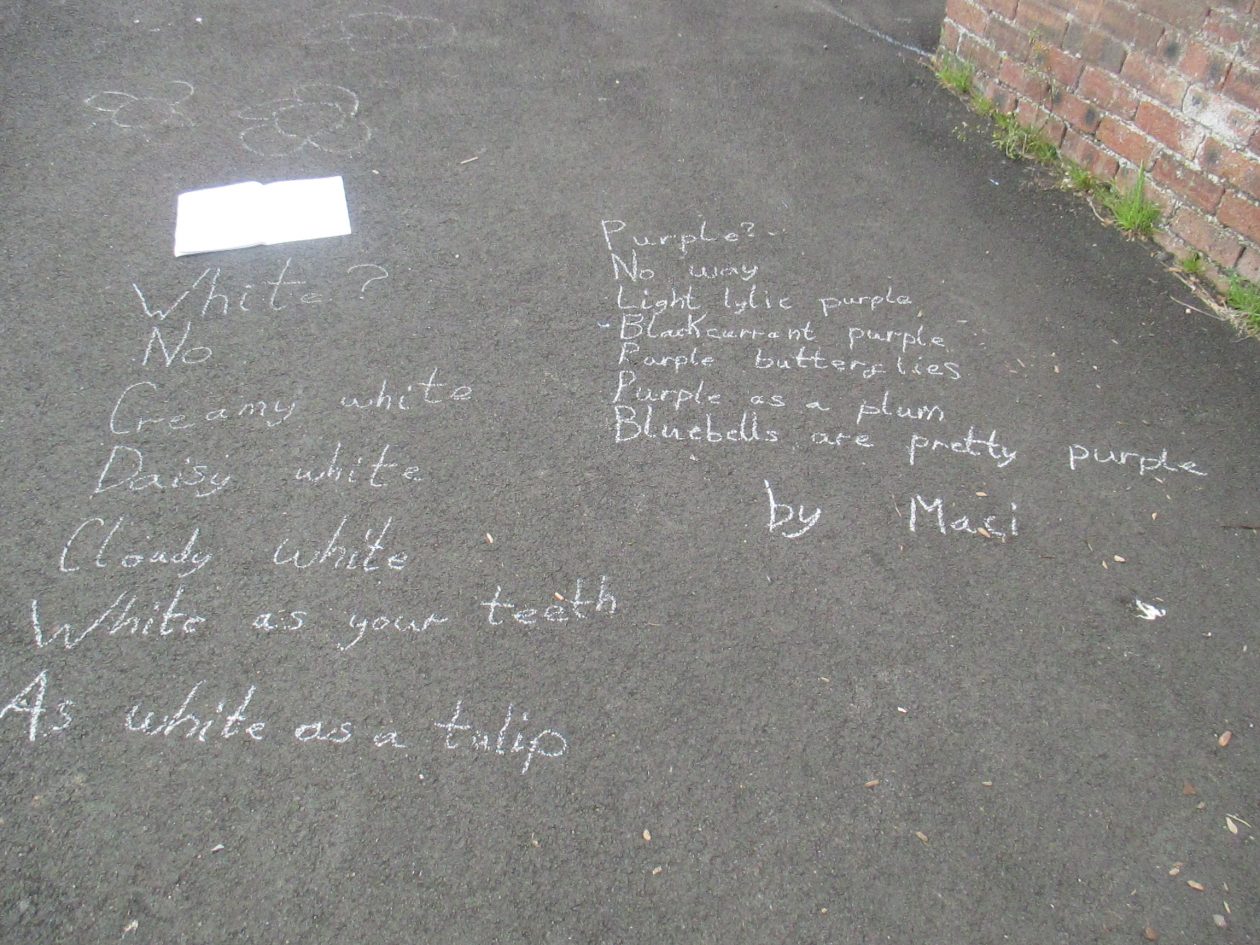 White?
No
Creamy white
Daisy white
Cloudy white
White as your teeth
As white as a tulip
Purple?
No way
Light lylic purple
Blackcurrant purple
Purple butterflies
Purple as a plum
Bluebells are pretty purple
by Maci